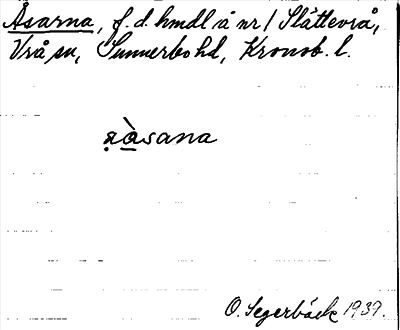 Åsarna, f. d. hmdl å nr 1 Slättevrå,
Vrå sn, Sunnerbo hd, Kronob. l.
åsana
O. Segerbäck 1937.